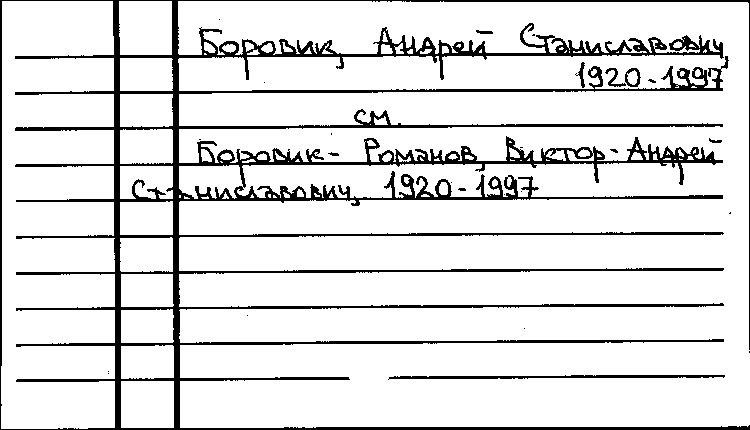 Боровик, Андрей Станиславович,
1920-1997
см.
Боровик-Романов, Виктор-Андрей
Станиславович, 1920-1997